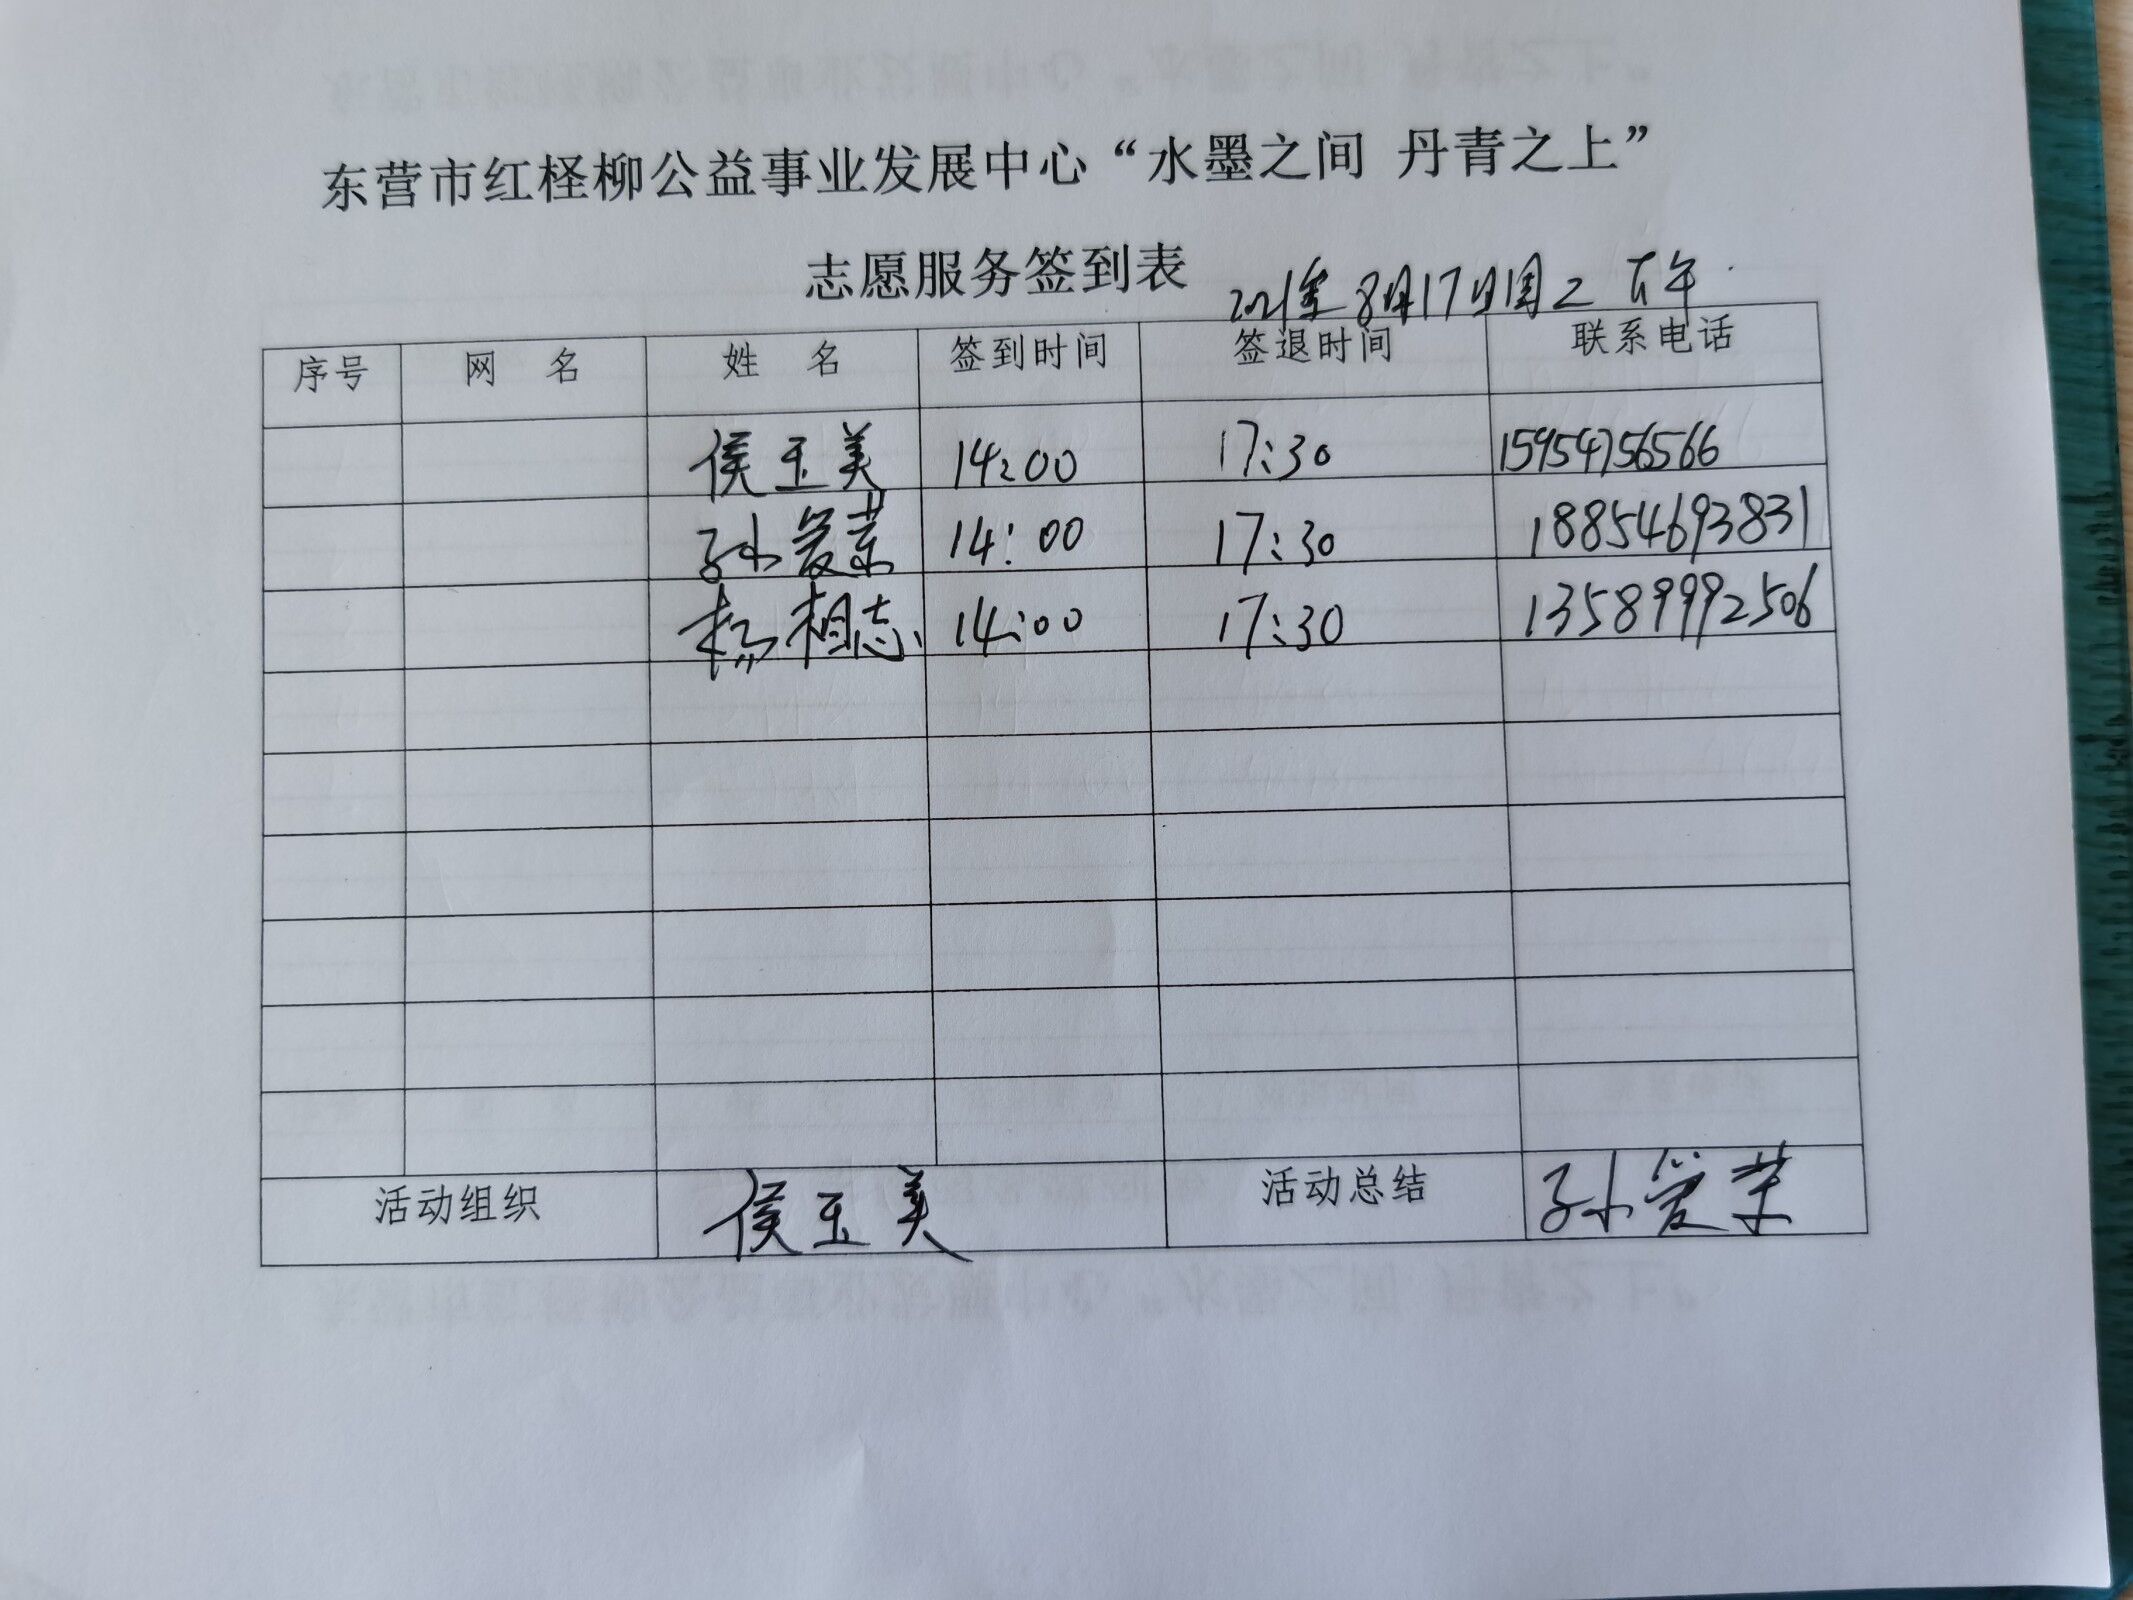 东营市红柽柳公益事业发展中心“水墨之间 丹青之上”
志愿服务签到表 2021年8月17日周二下午
序号 网 名 姓 名 签到时间 签退时间 联系电话
侯玉美 14:00 17:30 15954756566
孙爱荣 14:00 17:30 18854693831
杨相志 14:00 17:30 13589992506
活动组织 侯玉美 活动总结 孙爱荣